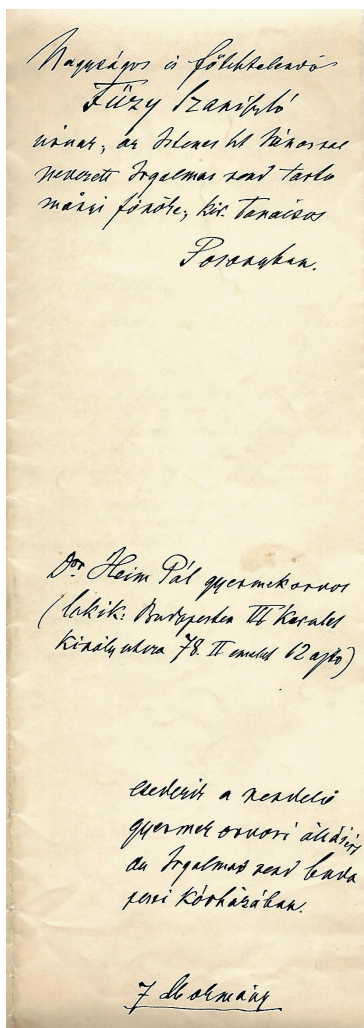 Nagyságos és főtisztelendő
Füzy Szaniszló
úrnak, az Istenes szt Jánosról
nevezett Irgalmas rend tarto
mányi főnöke, kir. tanácsos
Pozsonyban.
Dor Heim Pál gyermekorvos
(lakik: Budapesten III kerulet
király utcza 78. II emelet 12 ajtó)
esedezik a rendelő
gyermek orvosi állásért
az Irgalmas rend buda
pesti kórházában.
7 Okmány